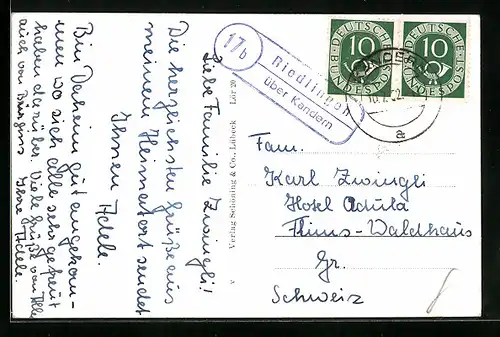 Liebe Familie Zwingli!
Die herzlichsten Grüße aus
meinem Heimatort sendet
Ihnen Adele.
Bin Daheim gut angekom-
men wo sich alle sehr gefreut
haben darüber. Viele Grüße von
auch von Ihre Adele.
a Verlag Schöning & Co., Lübeck Lör 20
17b
Riedlingen
über Kandern
DEUTSCHE BUNDESPOST
10
DEUTSCHE BUNDESPOST
10
a
Fam.
Karl Zwingli
Hotel Adula
Flims-Waldhaus
Gr.
Schweiz